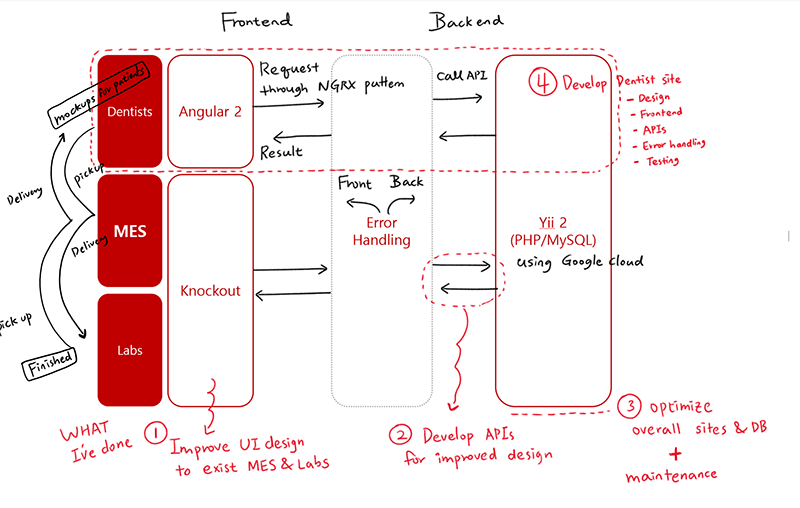 Frontend
Backend
mockups for patients
Dentists
Angular 2
Request
through NGRX pattern
Result
Call API
4 Develop Dentist site
- Design
- Frontend
- APIs
- Error handling
- Testing
Delivery
pickup
MES
Delivery
Knockout
Front Back
Error
Handling
Yii 2
(PHP/MySQL)
using Google cloud
pick up
Labs
Finished
WHAT
I've done
1 Improve UI design
to exist MES & Labs
2 Develop APIs
for improved design
3 optimize
overall sites & DB
+
maintenance